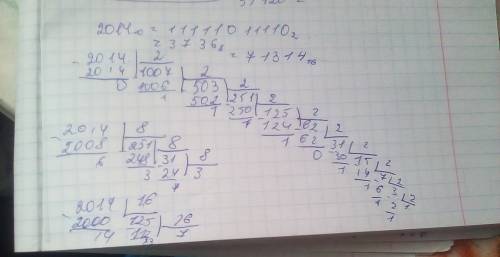 2014₁₀ = 11111011110₂
= 3736₈ = 71314₁₆
2014 | 2
2014 1007 | 2
0 1006 503 | 2
1 502 251 | 2
1 250 125 | 2
1 124 62 | 2
1 62 31 | 2
0 30 15 | 2
1 14 7 | 2
1 6 3 | 2
1 2 1
1
2014 | 8
2008 251 | 8
6 248 31 | 8
3 24 3
7
2014 | 16
2000 125 | 16
14 112 7
13